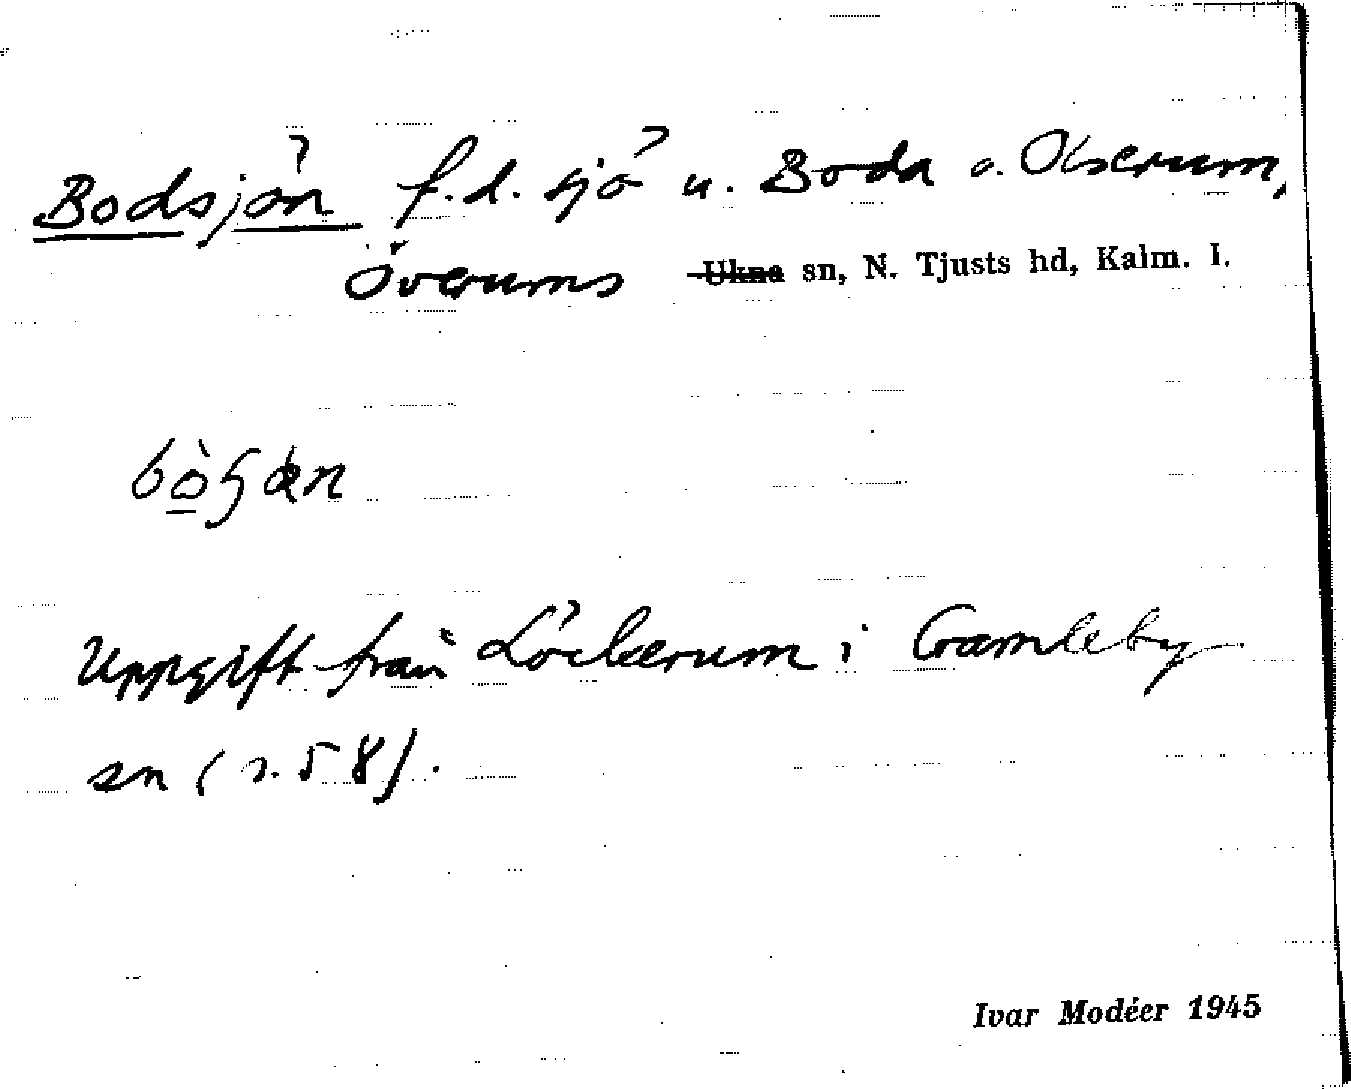 Bodsjön f.d. sjö u. Boda o. Olserum,
Överums Ukna sn, N. Tjusts hd, Kalm. l.
Uppgift från Löckerum i Gamleby
sn (s. 58).
Ivar Modéer 1945